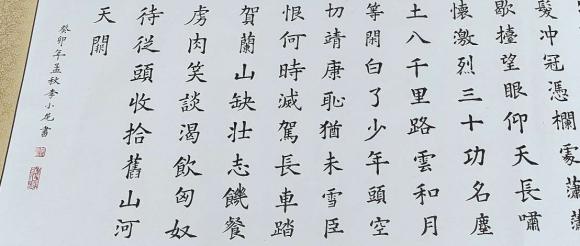 髮冲冠憑欄處瀟瀟
歇擡望眼仰天長嘯
懷激烈三十功名塵
土八千里路雲和月
等閑白了少年頭空
切靖康恥猶未雪臣
恨何時滅駕長車踏
賀蘭山缺壯志饑餐
虜肉笑談渴飲匈奴
待從頭收拾舊山河
天闕
癸卯年孟秋李小書